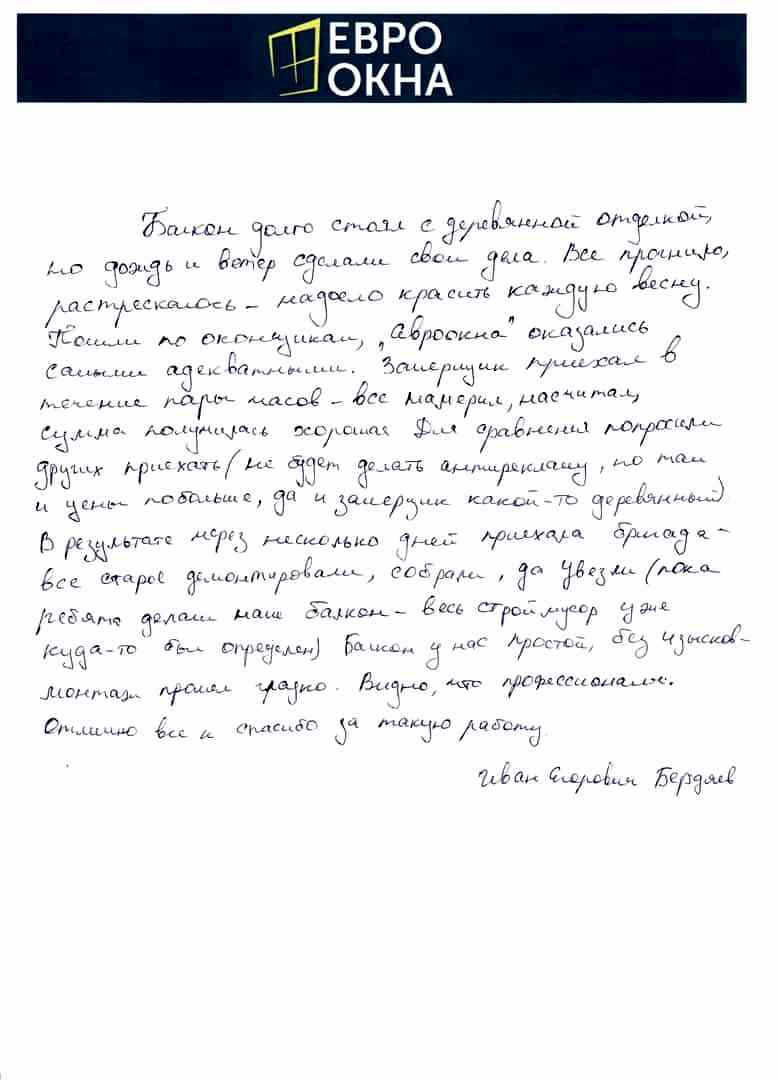 ЕВРО
ОКНА
Балкон долго стоял с деревянной отделкой,
но дождь и ветер сделали свои дела. Все прогнило,
растрескалось – надоело красить каждую весну.
Пошли по оконщикам, „Евроокна" оказались
самыми адекватными. Замерщик приехал в
течение пары часов – все намерил, насчитал,
сумма получилась хорошая Для сравнения попросили
других приехать (не будет делать антирекламу, но там
и цены побольше, да и замерщик какой-то деревянный)
В результате через несколько дней приехала бригада –
все старое демонтировали, собрали, да увезли (пока
ребята делали наш балкон – весь строймусор уже
куда-то был определен) Балкон у нас простой, без изысков –
монтаж прошел гладко. Видно, что профессионалы.
Отлично все и спасибо за такую работу.
Иван Егорович Бердяев